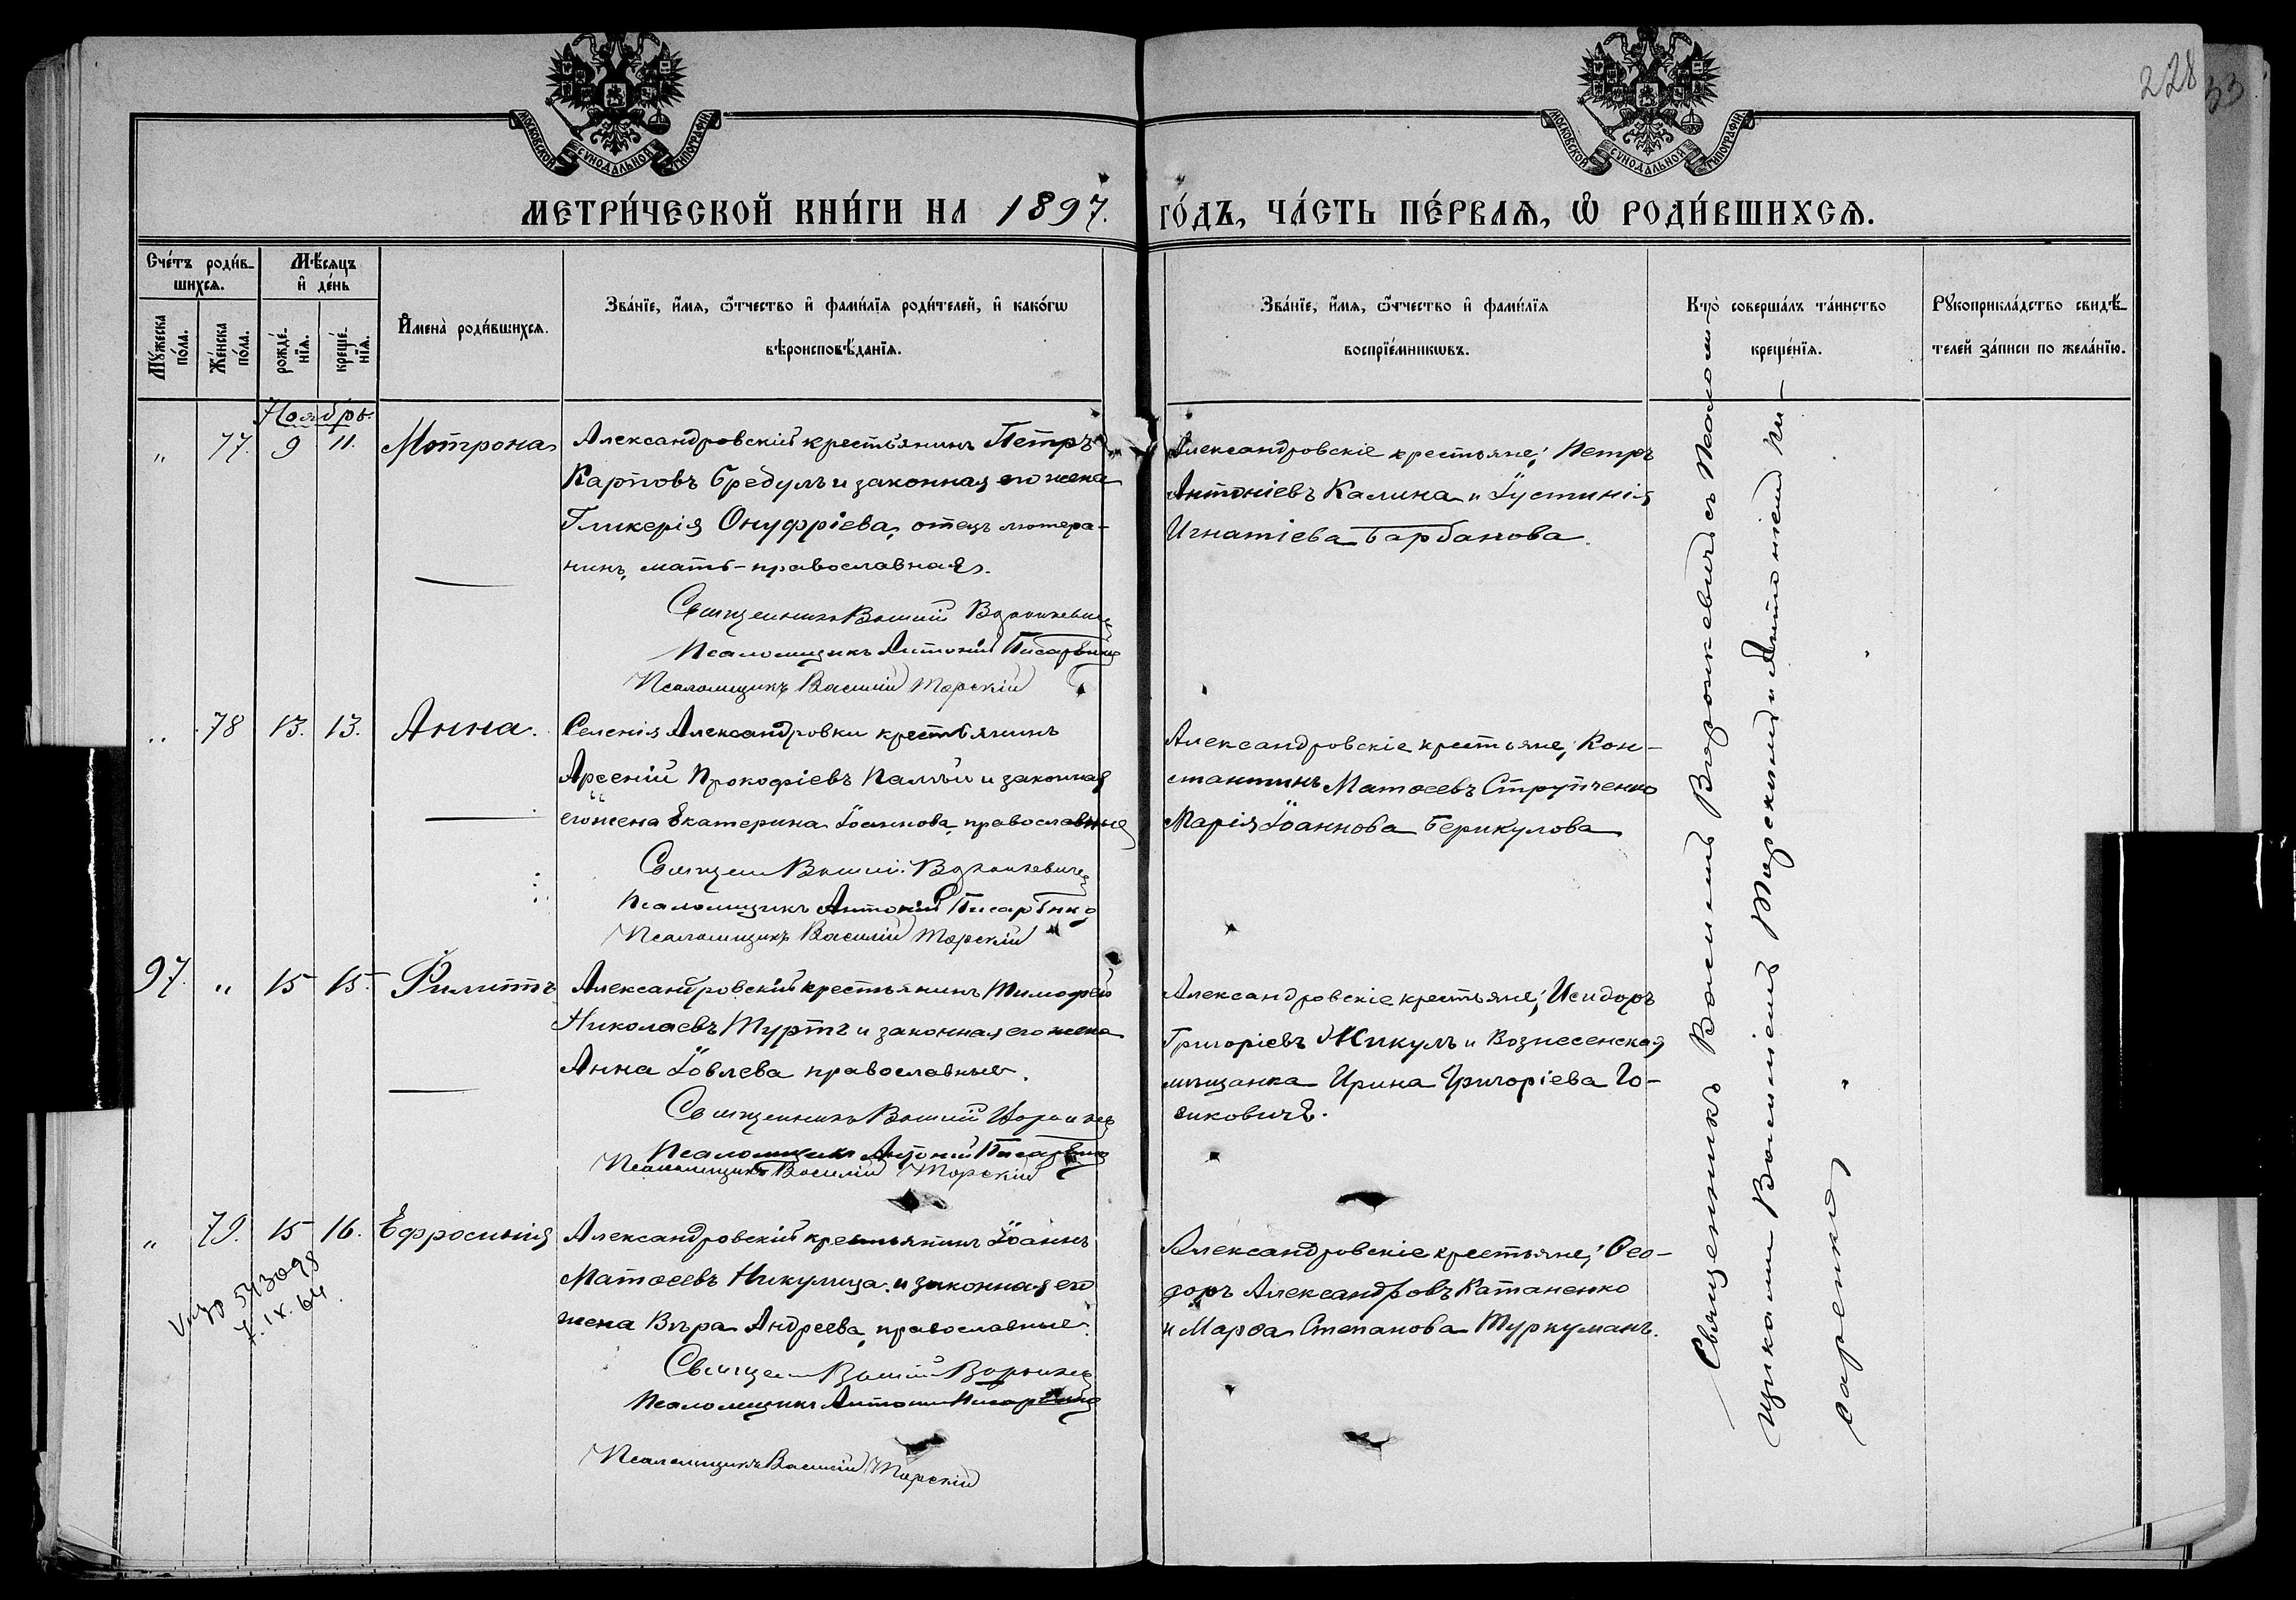 228
33
МОСКОВСКОЙ СѴНОДАЛЬНОЙ ТИПОГРАФІИ
МОСКОВСКОЙ СѴНОДАЛЬНОЙ ТИПОГРАФІИ
МЕТРИ́ЧЕСКОЙ КНИ́ГИ НА 1897. ГО́ДЪ, ЧА́СТЬ ПЕ́РВАѦ, Ѡ РОДИ́ВШИХСѦ.
Сче́тъ роди́в-
шихсѧ.
Мѣ́сѧцъ
и де́нь
Мꙋ́жеска по́ла.
Же́нска по́ла.
рожде́-
нїѧ.
креще́-
нїѧ.
Имена̀ роди́вшихсѧ.
Зва́нїе, и́мѧ, ѻ́тчество и фами́лїѧ роди́телей, и како́гѡ
вѣроисповѣ́данїѧ.
Зва́нїе, и́мѧ, ѻ́тчество и фами́лїѧ
воспрїе́мникѡвъ.
Кто̀ соверша́лъ та́инство
креще́нїѧ.
Рꙋкоприкла́дство свидѣ́-
телей за́писи по жела́нїю.
Ноябрь.
" 77. 9 11. Мотрона
Александровскій крестьянинъ Петръ
Карповъ Бредулъ и законная его жена
Гликерія Онуфріева, отецъ лютера-
нинъ, мать - православная.
Священникъ Василій Воронкевичъ
Псаломщикъ Антоній Писаренко
Псаломщикъ Василій Торскій
Александровскіе крестьяне; Петръ
Антоніевъ Калина и Іустинія
Игнатіева Барбанова.
" 78 13. 13. Анна.
Селенія Александровки крестьянинъ
Арсеній Прокофіевъ Палій и законная
его жена Екатерина Іоаннова, православные
Священ Василій Воронкевичъ
Псаломщикъ Антоній Писаренко
Псаломщикъ Василій Торскій
Александровскіе крестьяне; Кон-
стантинъ Матѳеевъ Струтченко
Марія Іоаннова Берикулова
97. " 15 15. Филиппъ
Александровскій крестьянинъ Тимофей
Николаевъ Туртъ и законная его жена
Анна Іовлева православные.
Священникъ Василій Воронкев
Псаломщикъ Антоній Писаренко
Псаломщикъ Василій Торскій
Александровскіе крестьяне; Исидоръ
Григоріевъ Микулъ и Вознесенская
мѣщанка Ирина Григоріева Го-
сиковичъ.
" 79. 15 16. Ефросинія
Александровскій крестьянинъ Іоаннъ
Матѳеевъ Никулица и законная его
жена Вѣра Андреева, православные.
Священ Василій Воронкев
Псаломщикъ Антоній Писаренко
Псаломщикъ Василій Торскій
Александровскіе крестьяне; Ѳео-
доръ Александровъ Катаненко
и Марѳа Степанова Туркуманъ.
543098
7.IX.64.
Священникъ Василій Воронкевичъ съ Псалом-
щиками Василіемъ Торскимъ и Антоніемъ Пи-
саренко